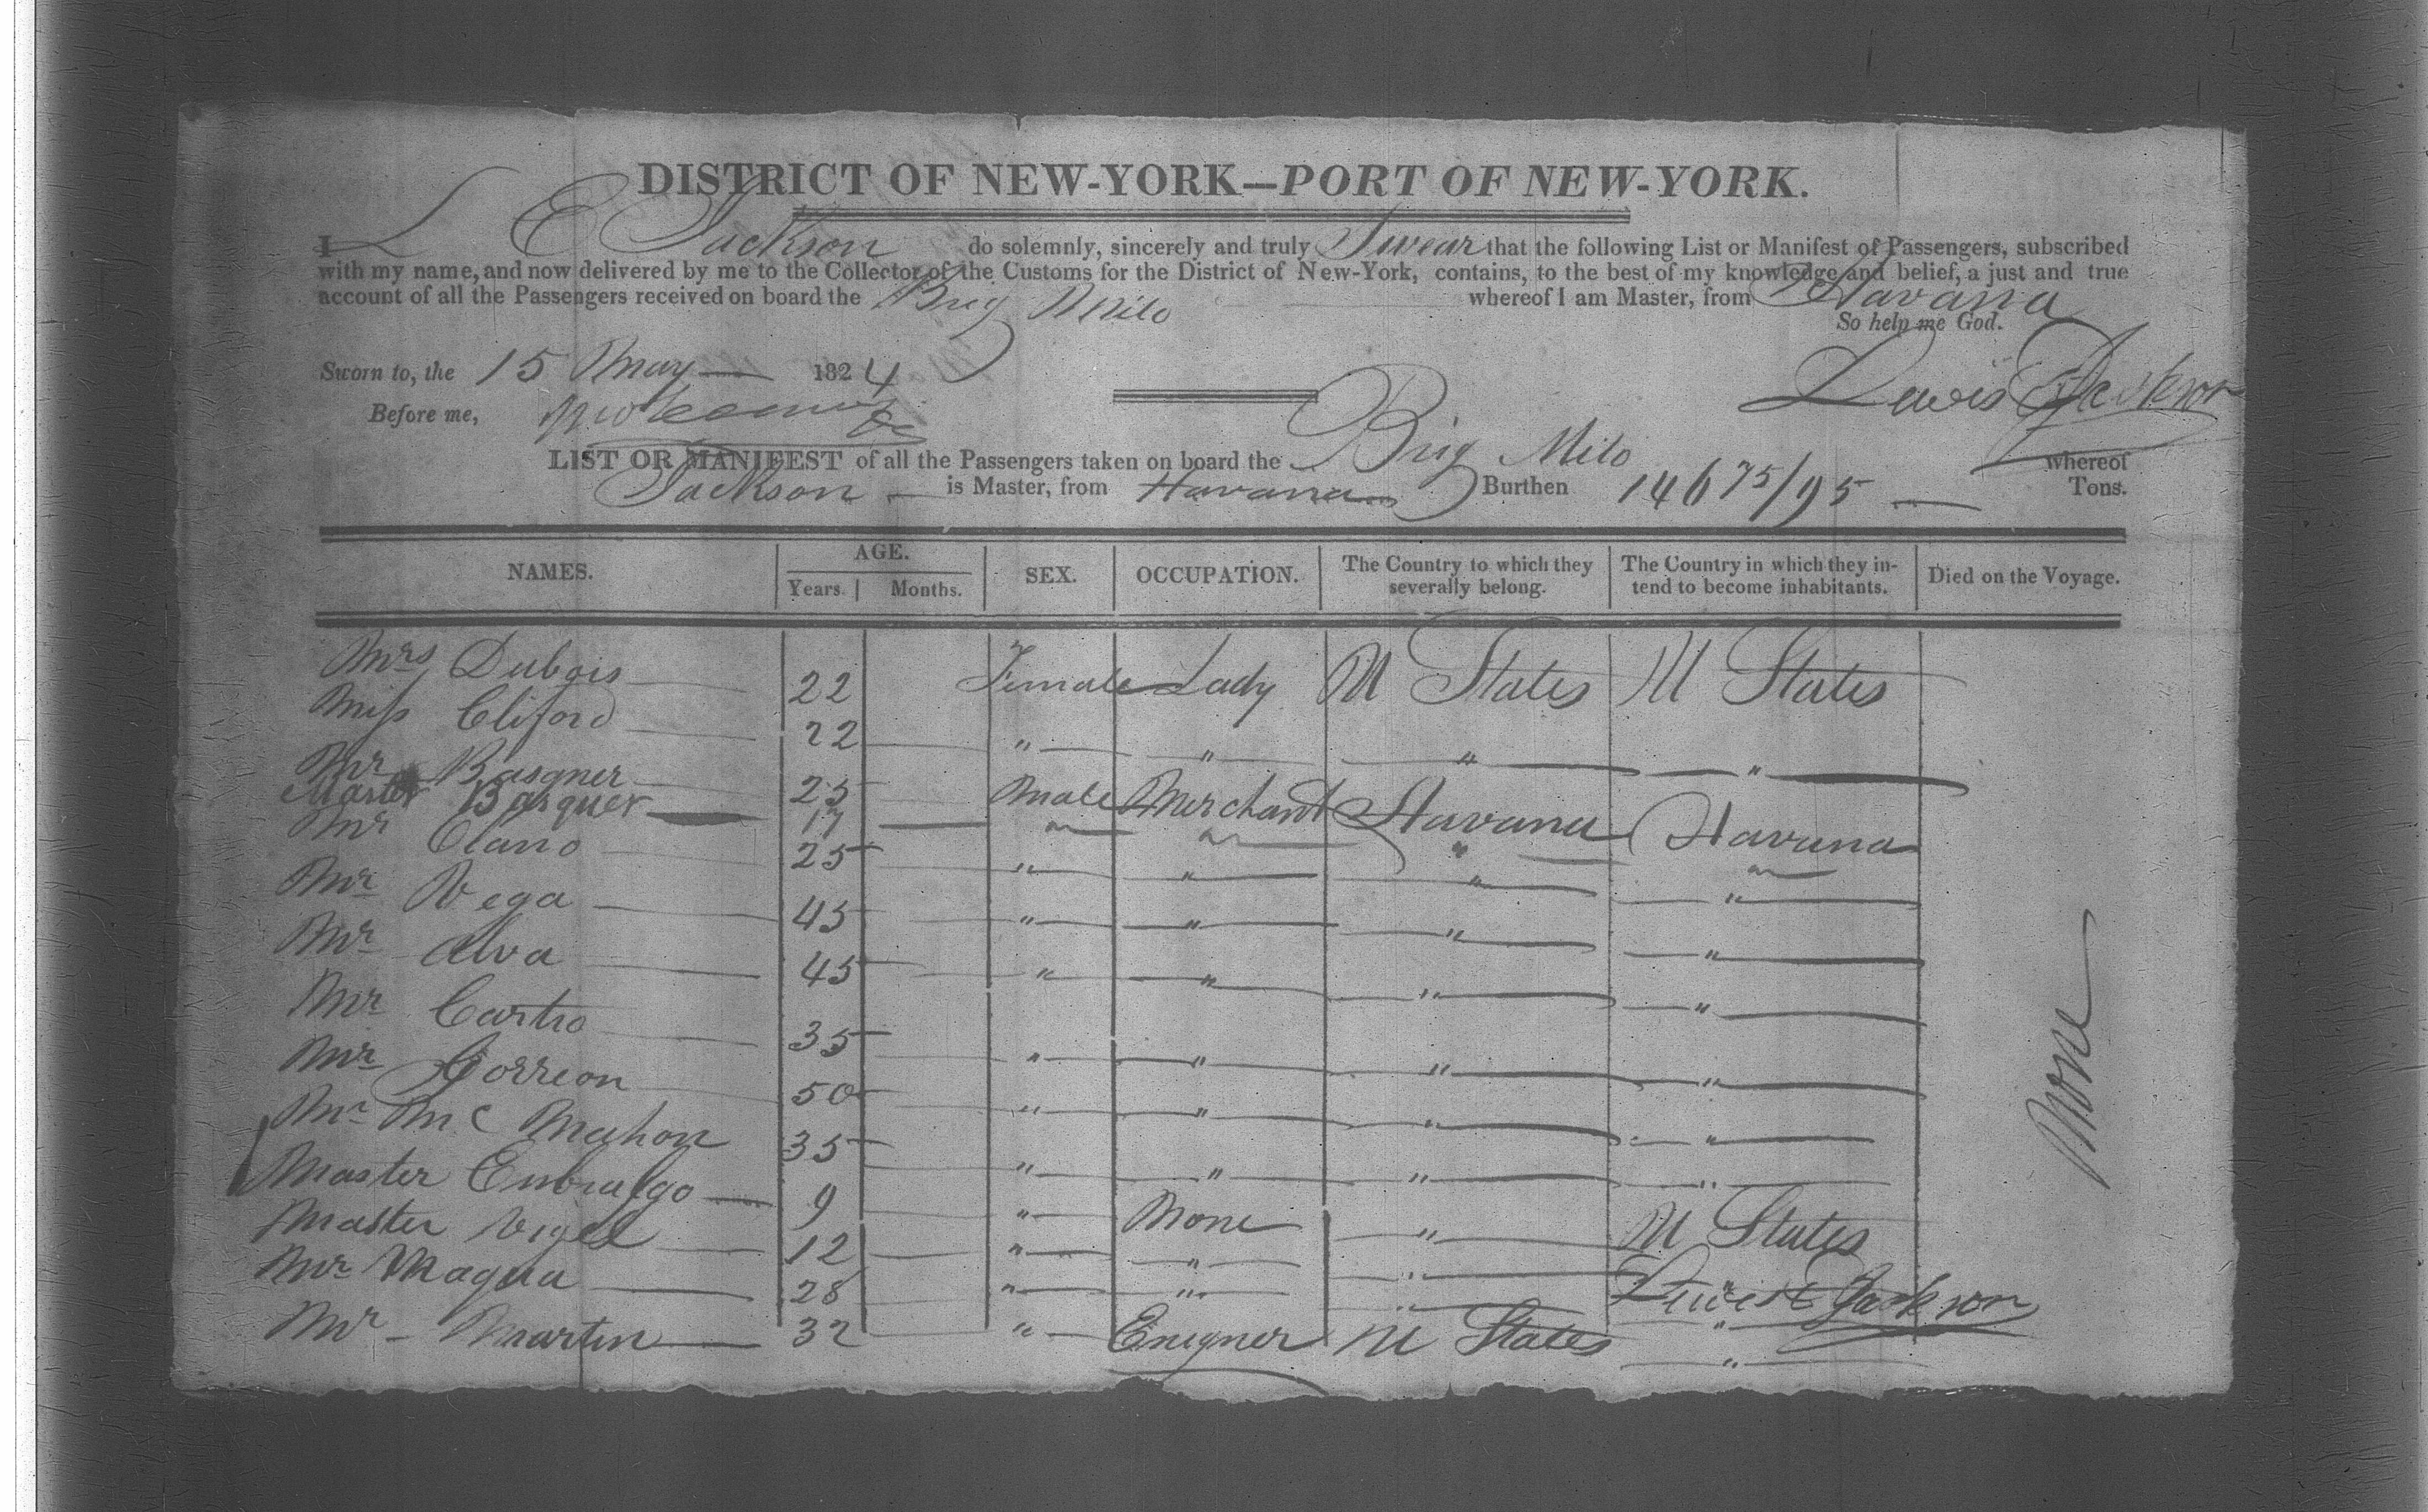 DISTRICT OF NEW-YORK—PORT OF NEW-YORK.
I L E Jackson do solemnly, sincerely and truly Swear that the following List or Manifest of Passengers, subscribed
with my name, and now delivered by me to the Collector of the Customs for the District of New-York, contains, to the best of my knowledge and belief, a just and true
account of all the Passengers received on board the Brig Milo whereof I am Master, from Havana
So help me God.
Sworn to, the 15 May 1824
Lewis E Jackson
Before me,
LIST OR MANIFEST of all the Passengers taken on board the Brig Milo whereof
Jackson is Master, from Havana Burthen 146 75/95 Tons.
NAMES. AGE. Years. Months. SEX. OCCUPATION. The Country to which they severally belong. The Country in which they intend to become inhabitants. Died on the Voyage.
Mrs Dubois 22 Female Lady U States U States
Miss Cliford 22 " " " "
Mr Basquer 25 Male Merchant Havana Havana
Master Basquer 17 " " " "
Mr Olano 25 " " " "
Mr Vega 45 " " " "
Mr Alva 45 " " " "
Mr Castro 35 " " " "
Mr Gorreon 50 " " " "
Mr Mc Mahon 35 " " " "
Master 9 " None " U States
Master Vigel 12 " " " "
Mr Maqua 28 " " " "
Mr Martin 32 " Enigner U States "
None
Lewis E Jackson